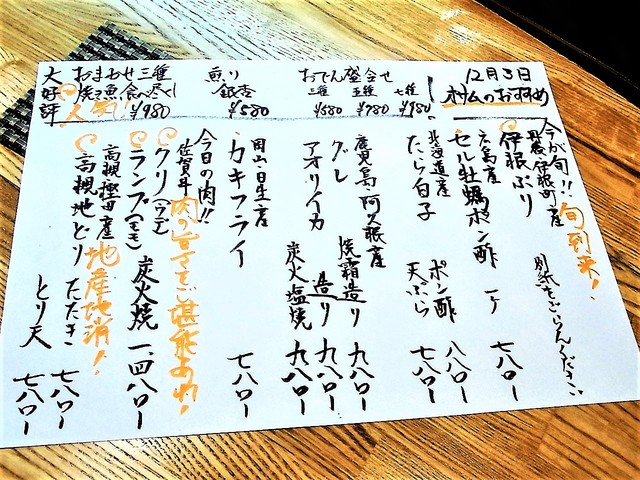 12月3日
オサムのおすすめ
おでん盛合せ
三種 五種 七種
¥580 ¥780 ¥980
煎り
銀杏
¥580
おまかせ三種
焼き魚食べ尽くし
¥980
大好評
大人気
今が旬!!
旬到来!
丹後・伊根町産
伊根ぶり 別紙をごらんください
広島産
セル牡蠣ポン酢 一ケ 七八〇ー
北海道産
たら白子 ポン酢 八八〇ー
天ぷら 七八〇ー
鹿児島・阿久根産
グレ 焼霜造り 九八〇ー
アオリイカ 造り 九八〇ー
炭火塩焼 九八〇ー
岡山・日生産
カキフライ 七八〇ー
今日の肉!!
佐賀牛
肉の旨さをご堪能あれ!
クリ(ウデ)
ランプ(モモ) 炭火焼 一、四八〇ー
高槻 産
高槻地どり たたき 七八〇ー
地産地消!
とり天 七八〇ー